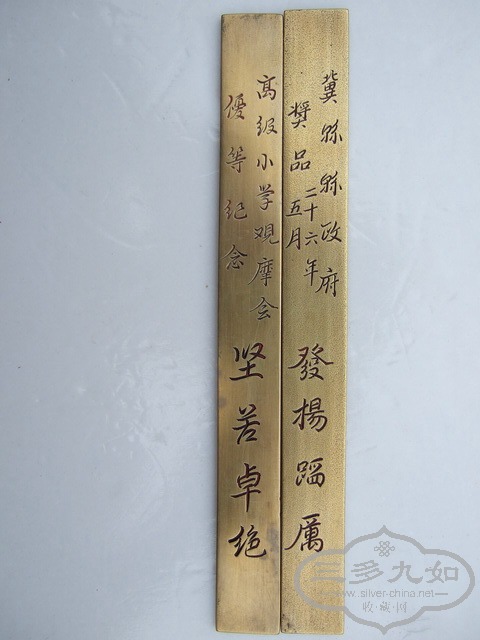 冀縣縣政府
獎品 二十六年
五月
發揚蹈厲
高级小学观摩会
優等纪念
坚苦卓绝
三多九如
www.silver-china.net
收·藏·网